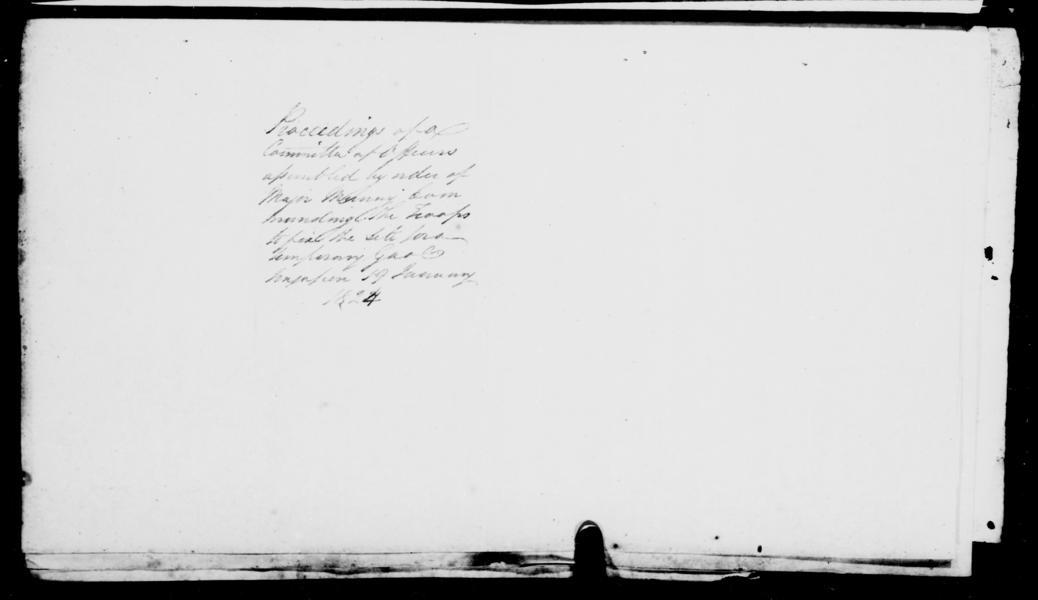 Proceedings of a
Committee of Officers
assembled by order of
Major Com
manding the Troops
to fix the site for a
temporary Gaol
19 January
1824